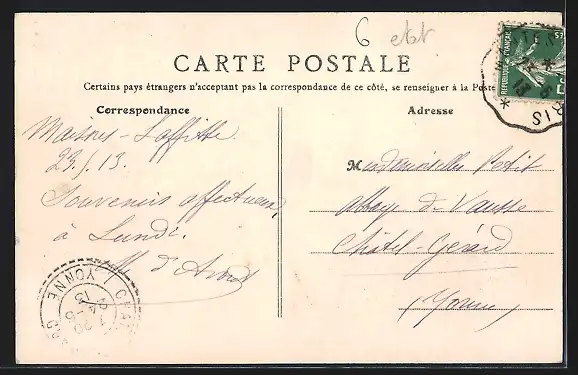 6 etat
CARTE POSTALE
Certains pays étrangers n'acceptant pas la correspondance de ce côté, se renseigner à la Poste
Correspondance
Maisons-Laffitte
23. 13.
Souvenirs affectueux,
à Lundi.
M d'
Adresse
Mesdemoiselles Petit
abbay de Vausse
Châtel-Gérard
(Yonne)
REPUBLIQUE FRANÇAISE
PARIS
YONNE